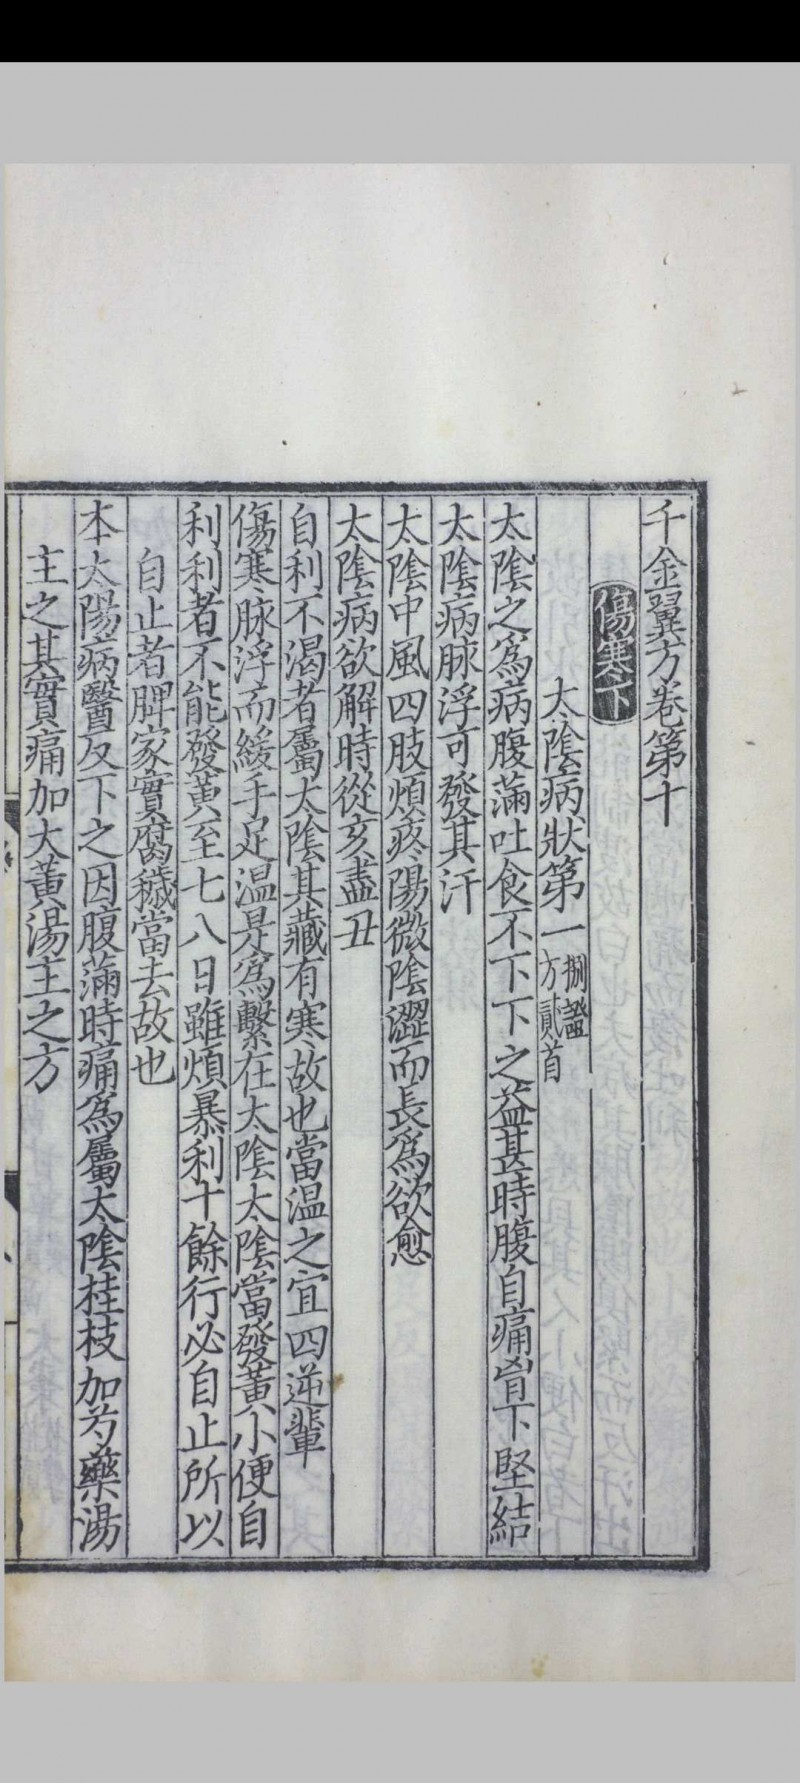 千金翼方卷第十
傷寒下
太陰病狀第一捌證方貳首
太陰之爲病腹滿吐食不下下之益甚時腹自痛胷下堅結
太陰病脉浮可發其汗
太陰中風四肢煩疼陽微陰澀而長爲欲愈
太陰病欲解時從亥盡丑
自利不渴者屬太陰其藏有寒故也當温之宜四逆輩
傷寒脉浮而緩手足温是爲繫在太陰太陰當發黃小便自
利利者不能發黃至七八日雖煩暴利十餘行必自止所以
自止者脾家實腐穢當去故也
本太陽病醫反下之因腹滿時痛爲屬太陰桂枝加芍藥湯
主之其實痛加大黃湯主之方